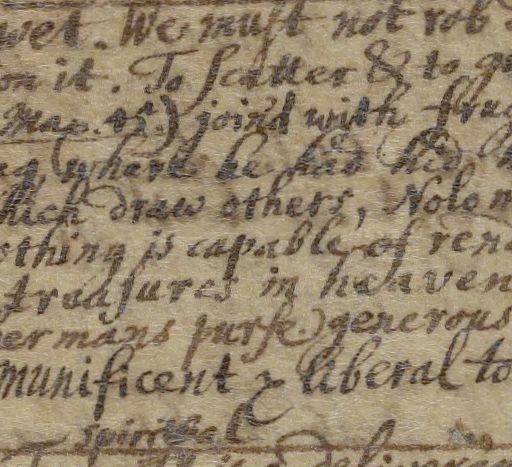 wet. We must not rob
on it. To scatter & to
Max. 45.) joind with frug
where he had hid
hich draw others, Nolo
othing is capable of ren
treasures in heaven
er mans purse. generous
munificent & liberal to
spiritual